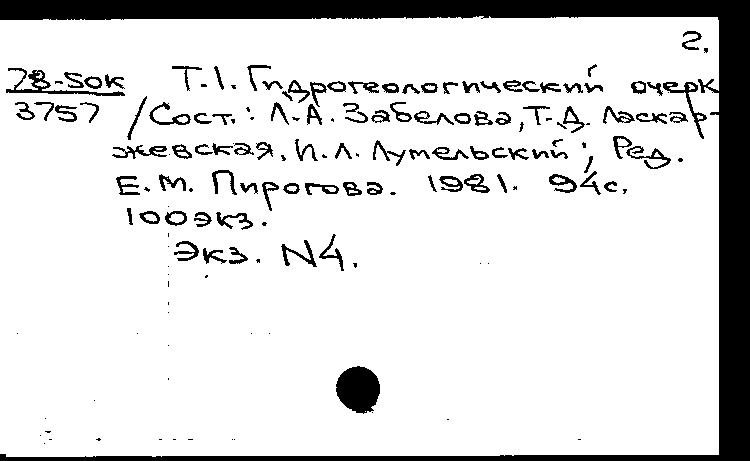 2.
78-5ок Т.1. Гидрогеологический очерк
3757 / Сост.: Л.А. Забелова, Т.Д. Ласкар-
жевская, И.Л. Лумельский; Ред.
Е.М. Пирогова. 1981. 94с.
100экз.
Экз. N4.